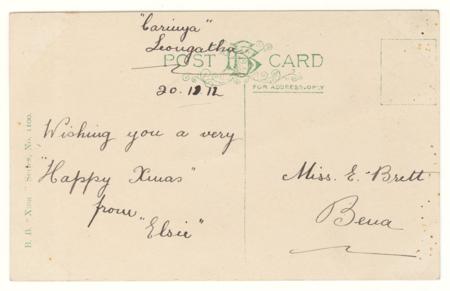 "Carinya"
Leongatha
POST CARD
FOR ADDRESS ONLY
20.12.12
Wishing you a very
"Happy Xmas"
from
"Elsie"
Miss. E. Brett
Bena
B. B. "Xmas" Series, No. 1100.